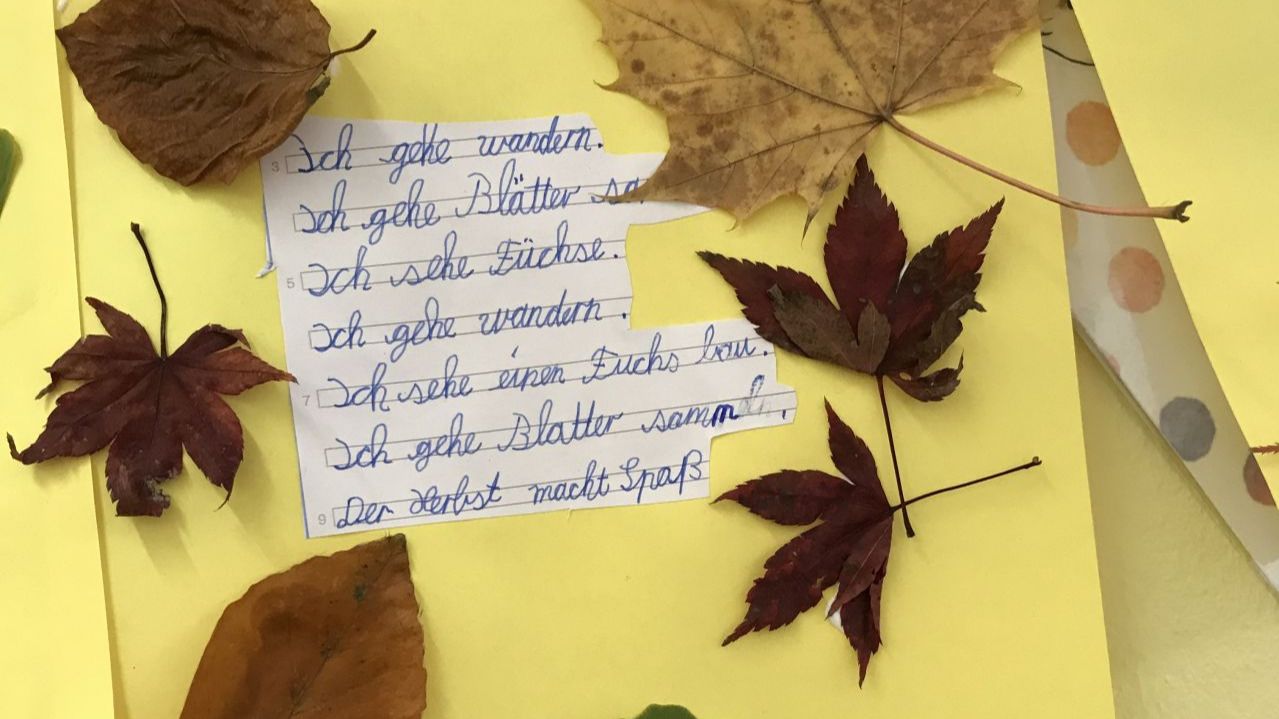 3 Ich gehe wandern.
Ich gehe Blätter
5 Ich sehe Füchse.
Ich gehe wandern.
7 Ich sehe einen Fuchs
Ich gehe Blatter
9 Der Herbst macht Spaß